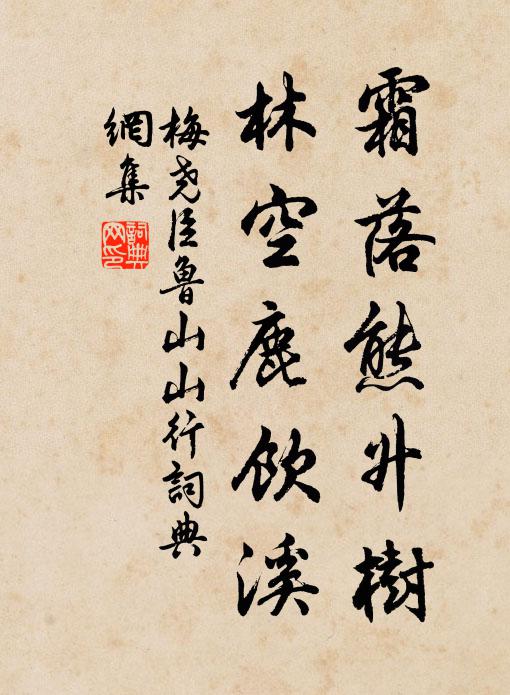 霜落熊升樹
林空鹿飲溪
梅堯臣魯山山行詞典
網集
詞典
网印